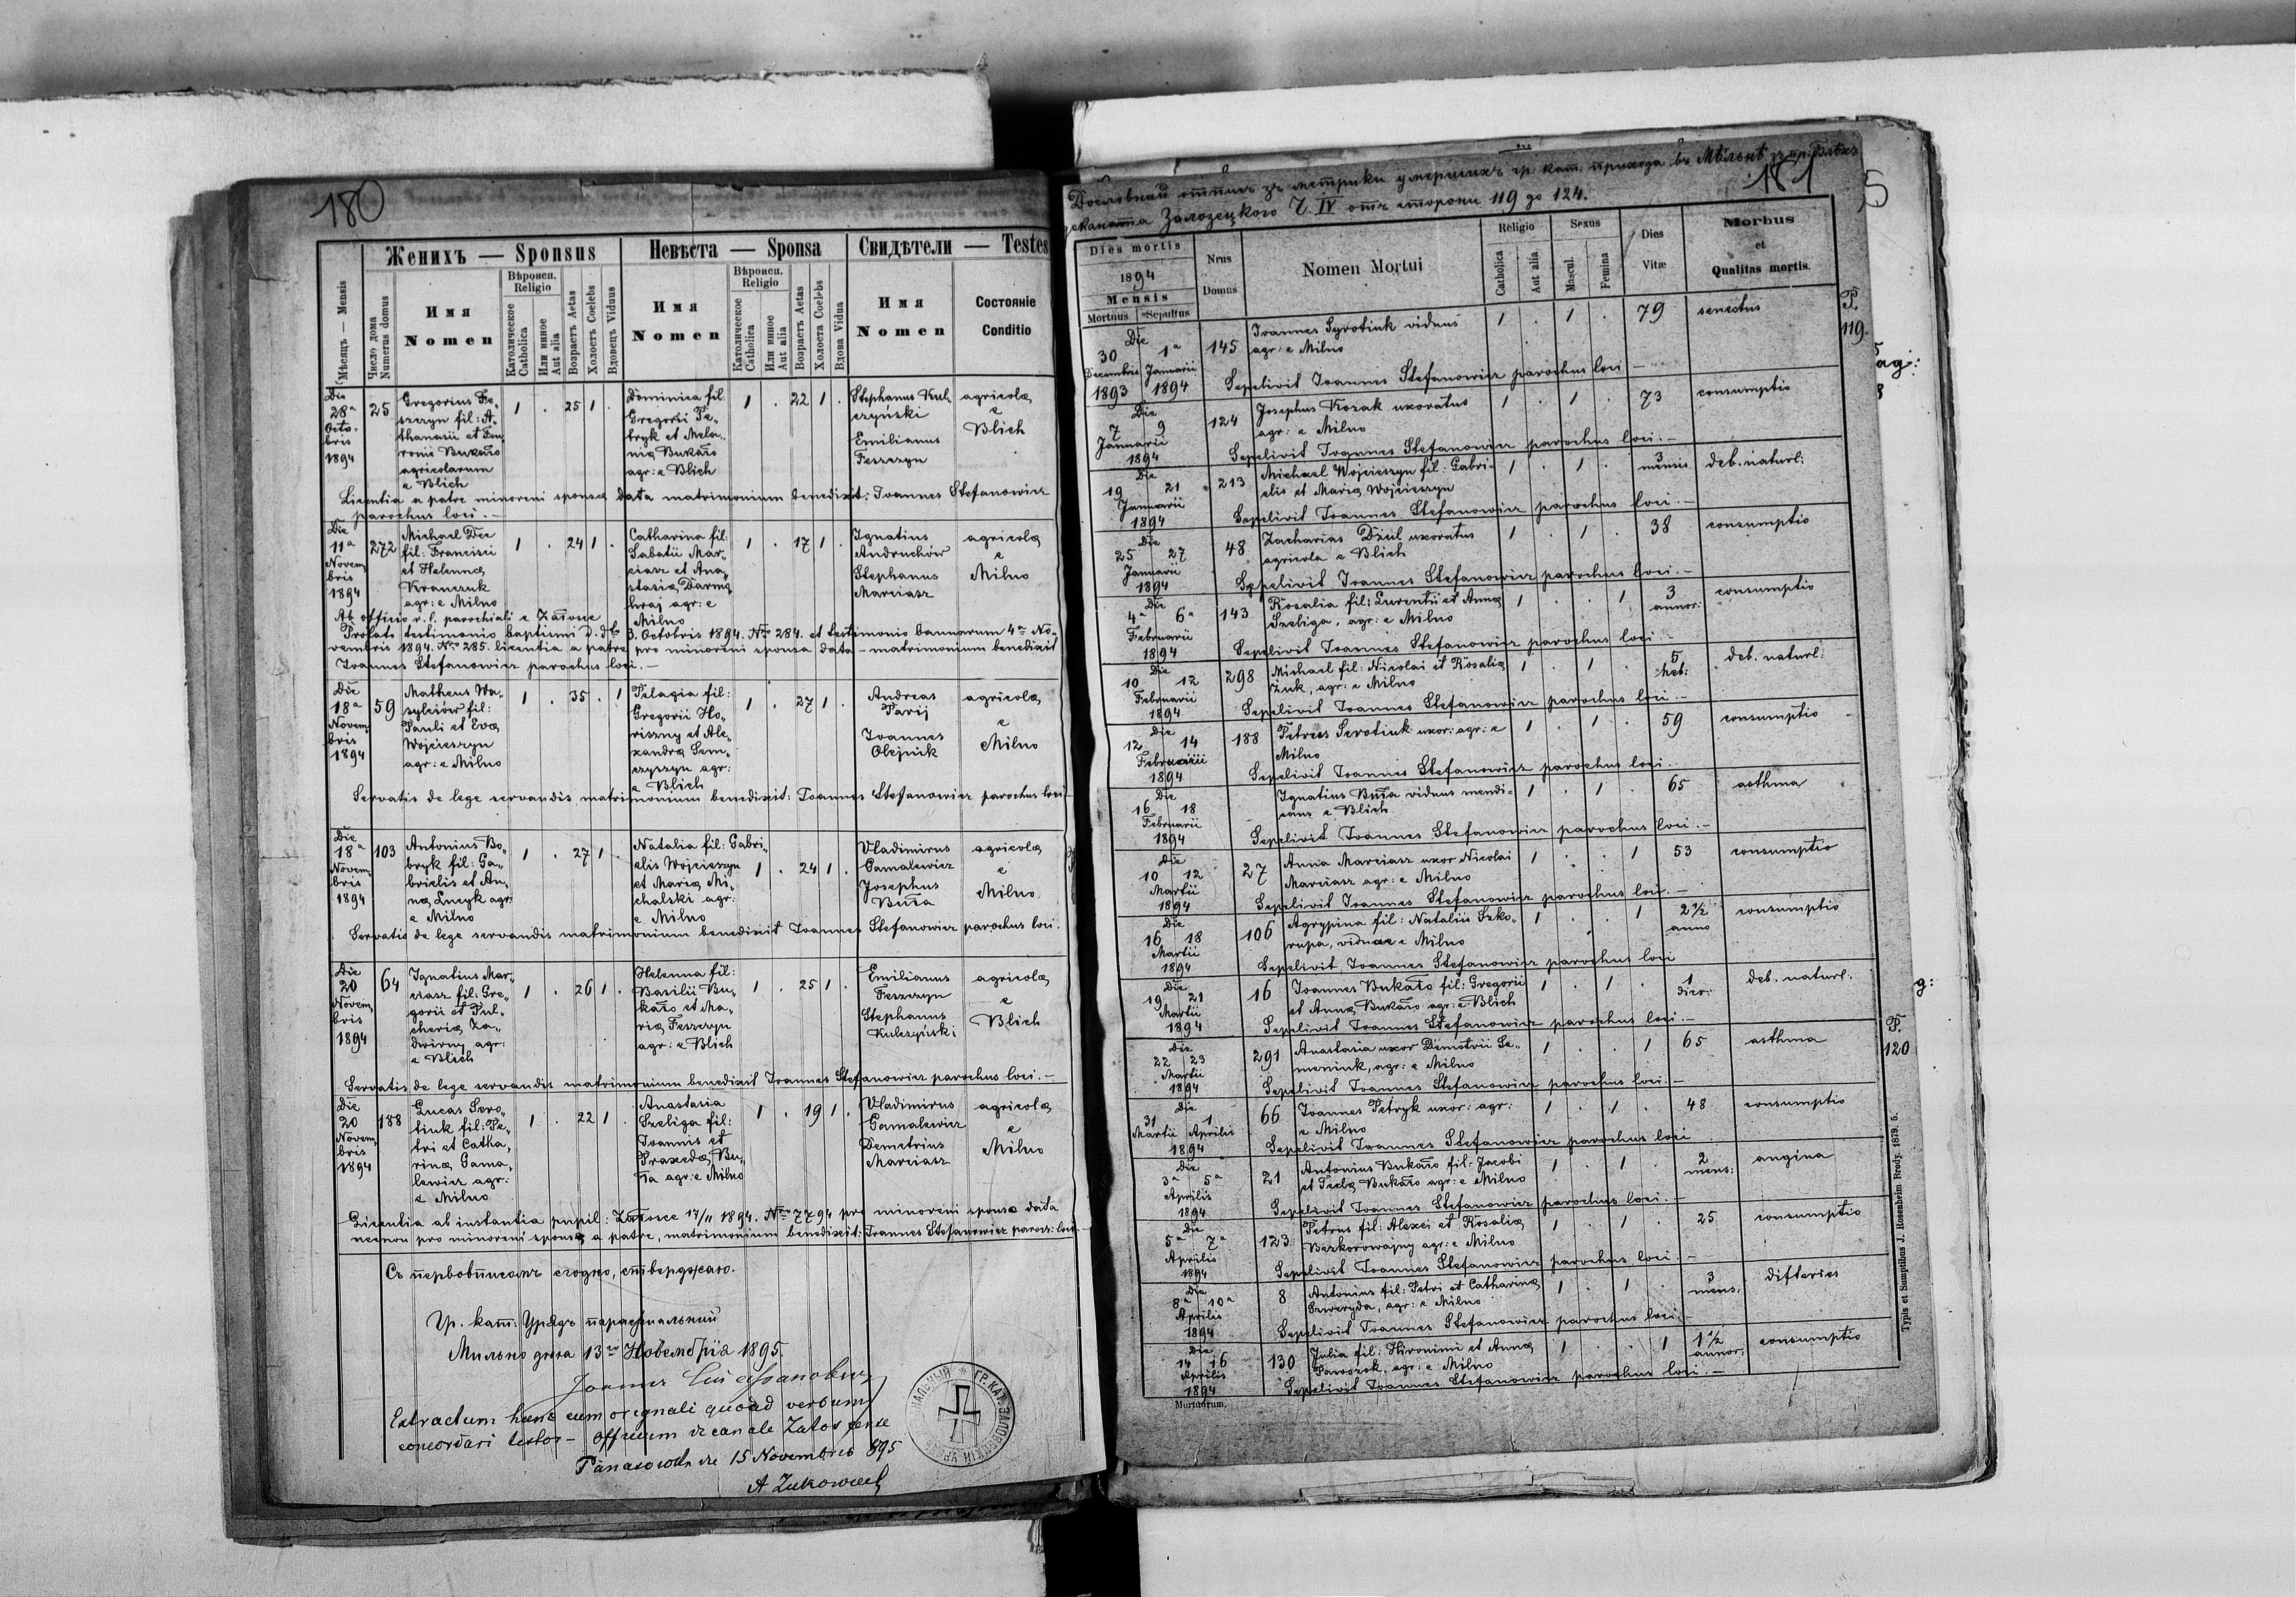 180
Женихъ — Sponsus
Невѣста — Sponsa
Свидѣтели — Testes
Мѣсяцъ — Mensis
Число дома
Numerus domus
Имя
Nomen
Вѣроисп.
Religio
Католическое
Catholica
Или иное
Aut alia
Возрастъ Aetas
Холостъ Coelebs
Вдовецъ Viduus
Имя
Nomen
Вѣроисп.
Religio
Католическое
Catholica
Или иное
Aut alia
Возрастъ Aetas
Холоста Coelebs
Вдова Vidua
Имя
Nomen
Состояніе
Conditio
Die
28ª
Octo-
bris
1894
25
Gregorius Fe-
szczyn fil: A-
thanasii et Fev-
ronia Bukało
agricolarum
e Blich
1 . 25 1 .
Dominica fil:
Gregorii Pe-
tryk et Mela-
nia Bukało
agr: e Blich
1 . 22 1 .
Stephanus Kul-
czyński
Emilianus
Feszczyn
agricolæ
e
Blich
Licentia a patre minoreni sponsæ data matrimonium benedixit: Joannes Stefanowicz
parochus loci. —
Die
11ª
Novem
bris
1894
272
Michael Dec
fil: Francisci
et Helenna
Krawczuk
agr: e Milno
1 . 24 1 .
Catharina fil:
Sabatii Mar-
ciasz et Ana-
stasia Darmo-
hraj agr: e
Milno
1 . 17 1 .
Ignatius
Andruchów
Stephanus
Marciasz
agricolæ
e
Milno
Ab officio r. l. parochiali e Załosce
Prolato testimonio baptismi d. dto 3. Octobris 1894. Nro 284. et testimonio bannorum 4ª No-
vembris 1894. Nro 285. licentia a patre pro minoreni sponsa data — matrimonium benedixit
Joannes Stefanowicz parochus loci. —
Die
18ª
Novem
bris
1894
59
Matheus Wa-
sylciów fil:
Pauli et Eva
Wojcieszyn
agr: e Milno
1 . 35 . 1
Pelagia fil:
Gregorii Ho-
riszny et Ale-
xandra Sem-
czyszyn agr:
e Blich
1 . 27 1 .
Andreas
Parij
Joannes
Olejnik
agricolæ
e
Milno
Servatis de lege servandis matrimonium benedixit: Joannes Stefanowicz parochus loci
Die
18ª
Novem
bris
1894
103
Antonius Bo-
bryk fil: Ga-
brielis et An-
na Lucyk agr:
e Milno
1 . 27 1 .
Natalia fil: Gabri-
elis Wojcieszyn
et Maria Mi-
chalski agr:
e Milno
1 . 24 1 .
Vladimirus
Gamalewicz
Josephus
Buta
agricolæ
e
Milno
Servatis de lege servandis matrimonium benedixit Joannes Stefanowicz parochus loci.
Die
20
Novem
bris
1894
64
Ignatius Mar-
ciasz fil: Gre-
gorii et Pul-
cheria Za-
dwirny agr:
e Blich
1 . 26 1 .
Helenna fil:
Basilii Bu-
kało et Ma-
ria Feszczyn
agr: e Blich
1 . 25 1 .
Emilianus
Feszczyn
Stephanus
Kulczyński
agricolæ
e
Blich
Servatis de lege servandis matrimonium benedixit Joannes Stefanowicz parochus loci. —
Die
20
Novem
bris
1894
188
Lucas Sero-
tiuk fil: Pe-
tri et Catha-
rina Gama-
lewicz agr:
e Milno
1 . 22 1 .
Anastasia
Szeliga fil:
Joannis et
Praxeda Bu-
ta agr: e Milno
1 . 19 1 .
Vladimirus
Gamalewicz
Demetrius
Marciasz
agricolæ
e
Milno
Licentia ab instantia pupil: Załosce 17/11 1894. Nro 7794 pro minoreni sponso data
necnon pro minoreni sponsa a patre, matrimonium benedixit: Joannes Stefanowicz paroch: loci
Съ первовписомъ сгодно, стверджаю.
Гр. кат: Урядъ парафіальный
Мильно дня 13го Новембрія 1895.
Extractum hunc cum originali quoad verbum
concordari testor — Officium decanale Załoscense
Panasowce die 15 Novembris 895
181
Дословный отписъ зъ метрики умершихъ гр. кат. прихода въ Мѣльнѣ зъ пр: Блѣхъ
деканата Залозецкого Ч. IV отъ стороны 119 до 124.
Dies mortis
1894
Mensis
Mortuus Sepultus
Nrus
Domus
Nomen Mortui
Religio
Catholica
Aut alia
Sexus
Mascul.
Femina
Dies
Vitæ
Morbus
et
Qualitas mortis.
P.
119.
Die
30 1ª
Decembris Januarii
1893 1894
145
Joannes Syrotiuk viduus
agr: e Milno
1 . 1 . 79 senectus
Sepelivit Joannes Stefanowicz parochus loci —
Die
7 9
Januarii
1894
124
Josephus Kozak uxoratus
agr: e Milno
1 . 1 . 73 consumptio
Sepelivit Joannes Stefanowicz parochus loci. —
Die
19 21
Januarii
1894
213
Michael Wojcieszyn fil: Gabri-
elis et Maria Wojcieszyn
1 . 1 . 3 mensis deb. naturl:
Sepelivit Joannes Stefanowicz parochus loci. —
Die
25 27
Januarii
1894
48
Zacharias Dzul uxoratus
agricola e Blich
1 . 1 . 38 consumptio
Sepelivit Joannes Stefanowicz parochus loci. —
Die
4ª 6ª
Februarii
1894
143
Rosalia fil: Laurentii et Anna
Szeliga, agr: e Milno
1 . . 1 3 annor: consumptio
Sepelivit Joannes Stefanowicz parochus loci —
Die
10 12
Februarii
1894
298
Michael fil: Nicolai et Rosalia
Żuk, agr: e Milno
1 . 1 . 5 heb: deb. naturl:
Sepelivit Joannes Stefanowicz parochus loci. —
Die
12 14
Februarii
1894
188
Petrus Serotiuk uxor: agr: e
Milno
1 . 1 . 59 consumptio
Sepelivit Joannes Stefanowicz parochus loci.
Die
16 18
Februarii
1894
Ignatius Buta viduus mendi-
cans e Blich
1 . 1 . 65 asthma
Sepelivit Joannes Stefanowicz parochus loci. —
Die
10 12
Martii
1894
27
Anna Marciasz uxor Nicolai
Marciasz agr: e Milno
1 . . 1 53 consumptio
Sepelivit Joannes Stefanowicz parochus loci. —
Die
16 18
Martii
1894
106
Agrypina fil: Nataliæ Szko-
rupa, viduae e Milno
1 . . 1 2 1/2 anno consumptio
Sepelivit Joannes Stefanowicz parochus loci
Die
19 21
Martii
1894
16
Joannes Bukało fil: Gregorii
et Anna Bukało agr: e Blich
1 . 1 . 1 dier: deb. naturl:
Sepelivit Joannes Stefanowicz parochus loci. —
P.
120
Die
22 23
Martii
1894
291
Anastasia uxor Demetrii Se-
meniuk, agr: e Milno
1 . . 1 65 asthma
Sepelivit Joannes Stefanowicz parochus loci. —
Die
31 1
Martii Aprilis
1894
66
Joannes Petryk uxor: agr:
e Milno
1 . 1 . 48 consumptio
Sepelivit Joannes Stefanowicz parochus loci
Die
3ª 5ª
Aprilis
1894
21
Antonius Bukało fil: Jacobi
et Thecla Bukało agr: e Milno
1 . 1 . 2 mens: angina
Sepelivit Joannes Stefanowicz parochus loci. —
Die
5ª 7ª
Aprilis
1894
123
Petrus fil: Alexei et Rosalia
Bezkorowajny agr: e Milno
1 . 1 . 25 consumptio
Sepelivit Joannes Stefanowicz parochus loci. —
Die
8ª 10ª
Aprilis
1894
8
Antonius fil: Petri et Catharina
Szweryda, agr: e Milno
1 . 1 . 3 mens: difteries
Sepelivit Joannes Stefanowicz parochus loci.
Die
14 16
Aprilis
1894
130
Julia fil: Hironimi et Anna
Paroszok, agr: e Milno
1 . . 1 1 1/2 annor: consumptio
Sepelivit Joannes Stefanowicz parochus loci. —
Mortuorum.
Typis et Sumptibus J. Rosenheim Brody. 1879. 5.
ag:
g: